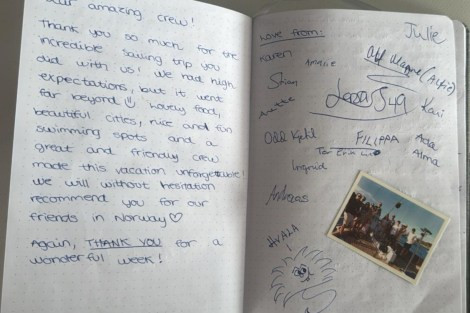 amazing crew!
Thank you so much for the
incredible sailing trip you
did with us! We had high
expectations, but it went
far beyond Lovely food,
beautiful cities, nice and fun
swimming spots and a
great and friendly crew
made this vacation unforgettable!
We will without hesitation
recommend you for our
friends in Norway
Again, THANK YOU for a
wonderful week!
Love from:
Julie
Karen
Kari
Odd Kjetil
FILIPPA
Ada
Alma
Ingrid
Andreas
#VALA